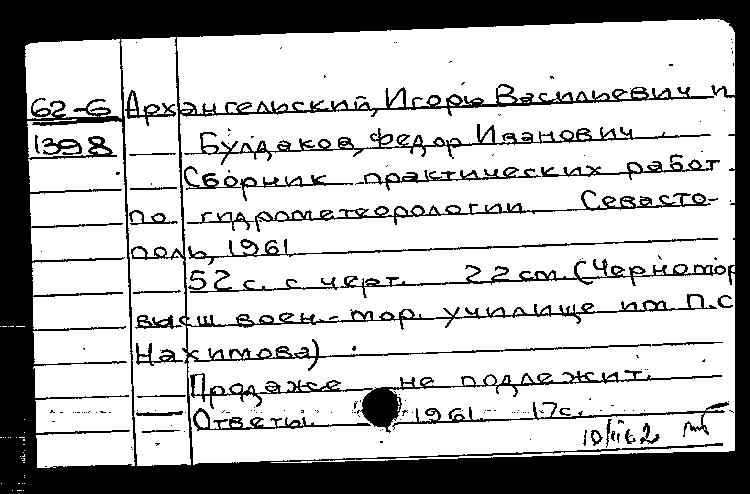 62-6 Архангельский, Игорь Васильевич и
1398 Булдаков, Федор Иванович.
Сборник практических работ
по гидрометеорологии. Севасто-
поль, 1961
52 с. с черт. 22 см. (Черномор
высш. воен.-мор. училище им. П.С
Нахимова).
Продаже не подлежит.
Ответы. 1961. 17с.
10/II62